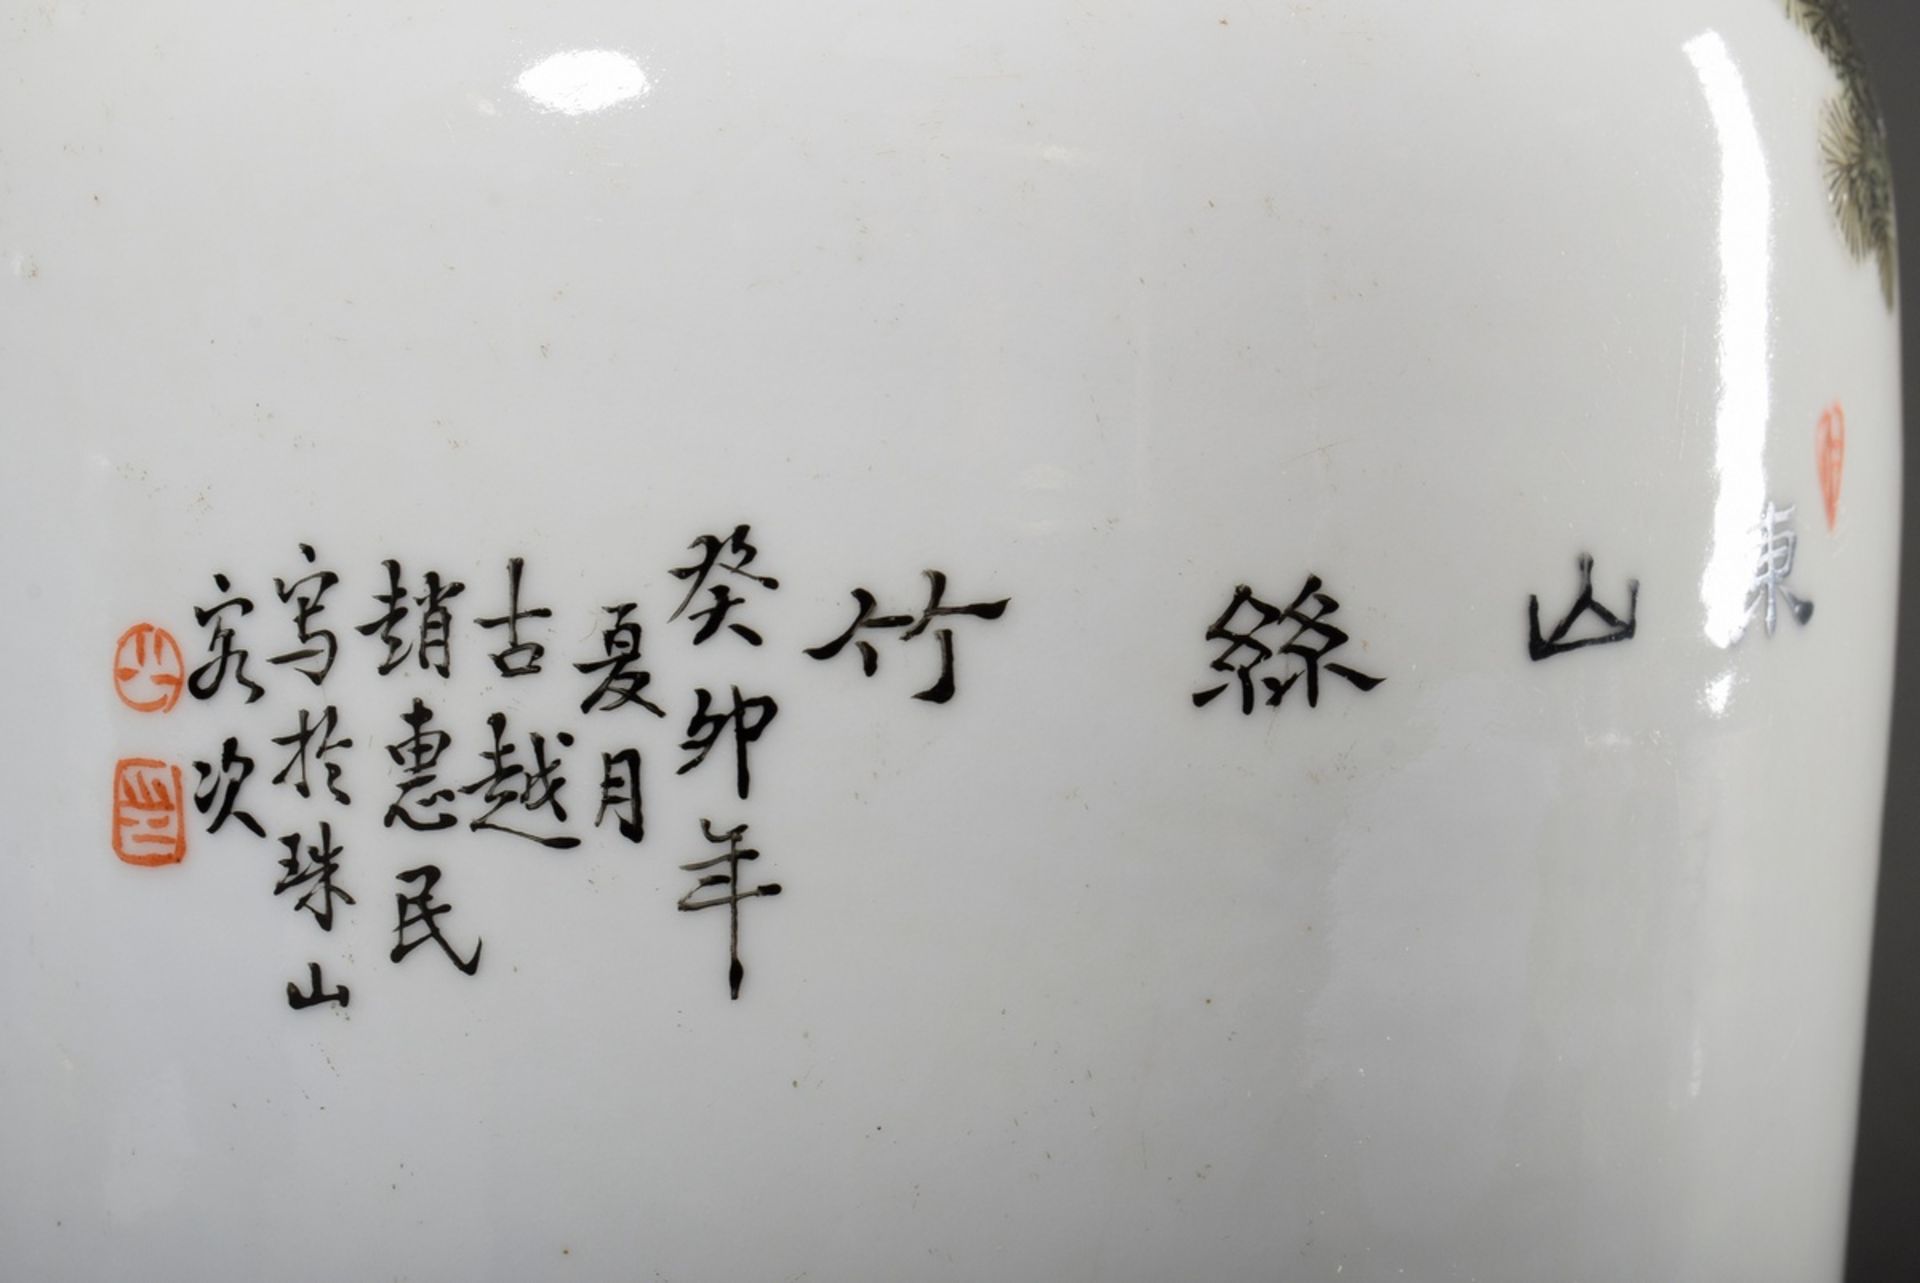 東山絲竹
癸卯年
夏月
古越
趙惠民
寫於珠山
客次